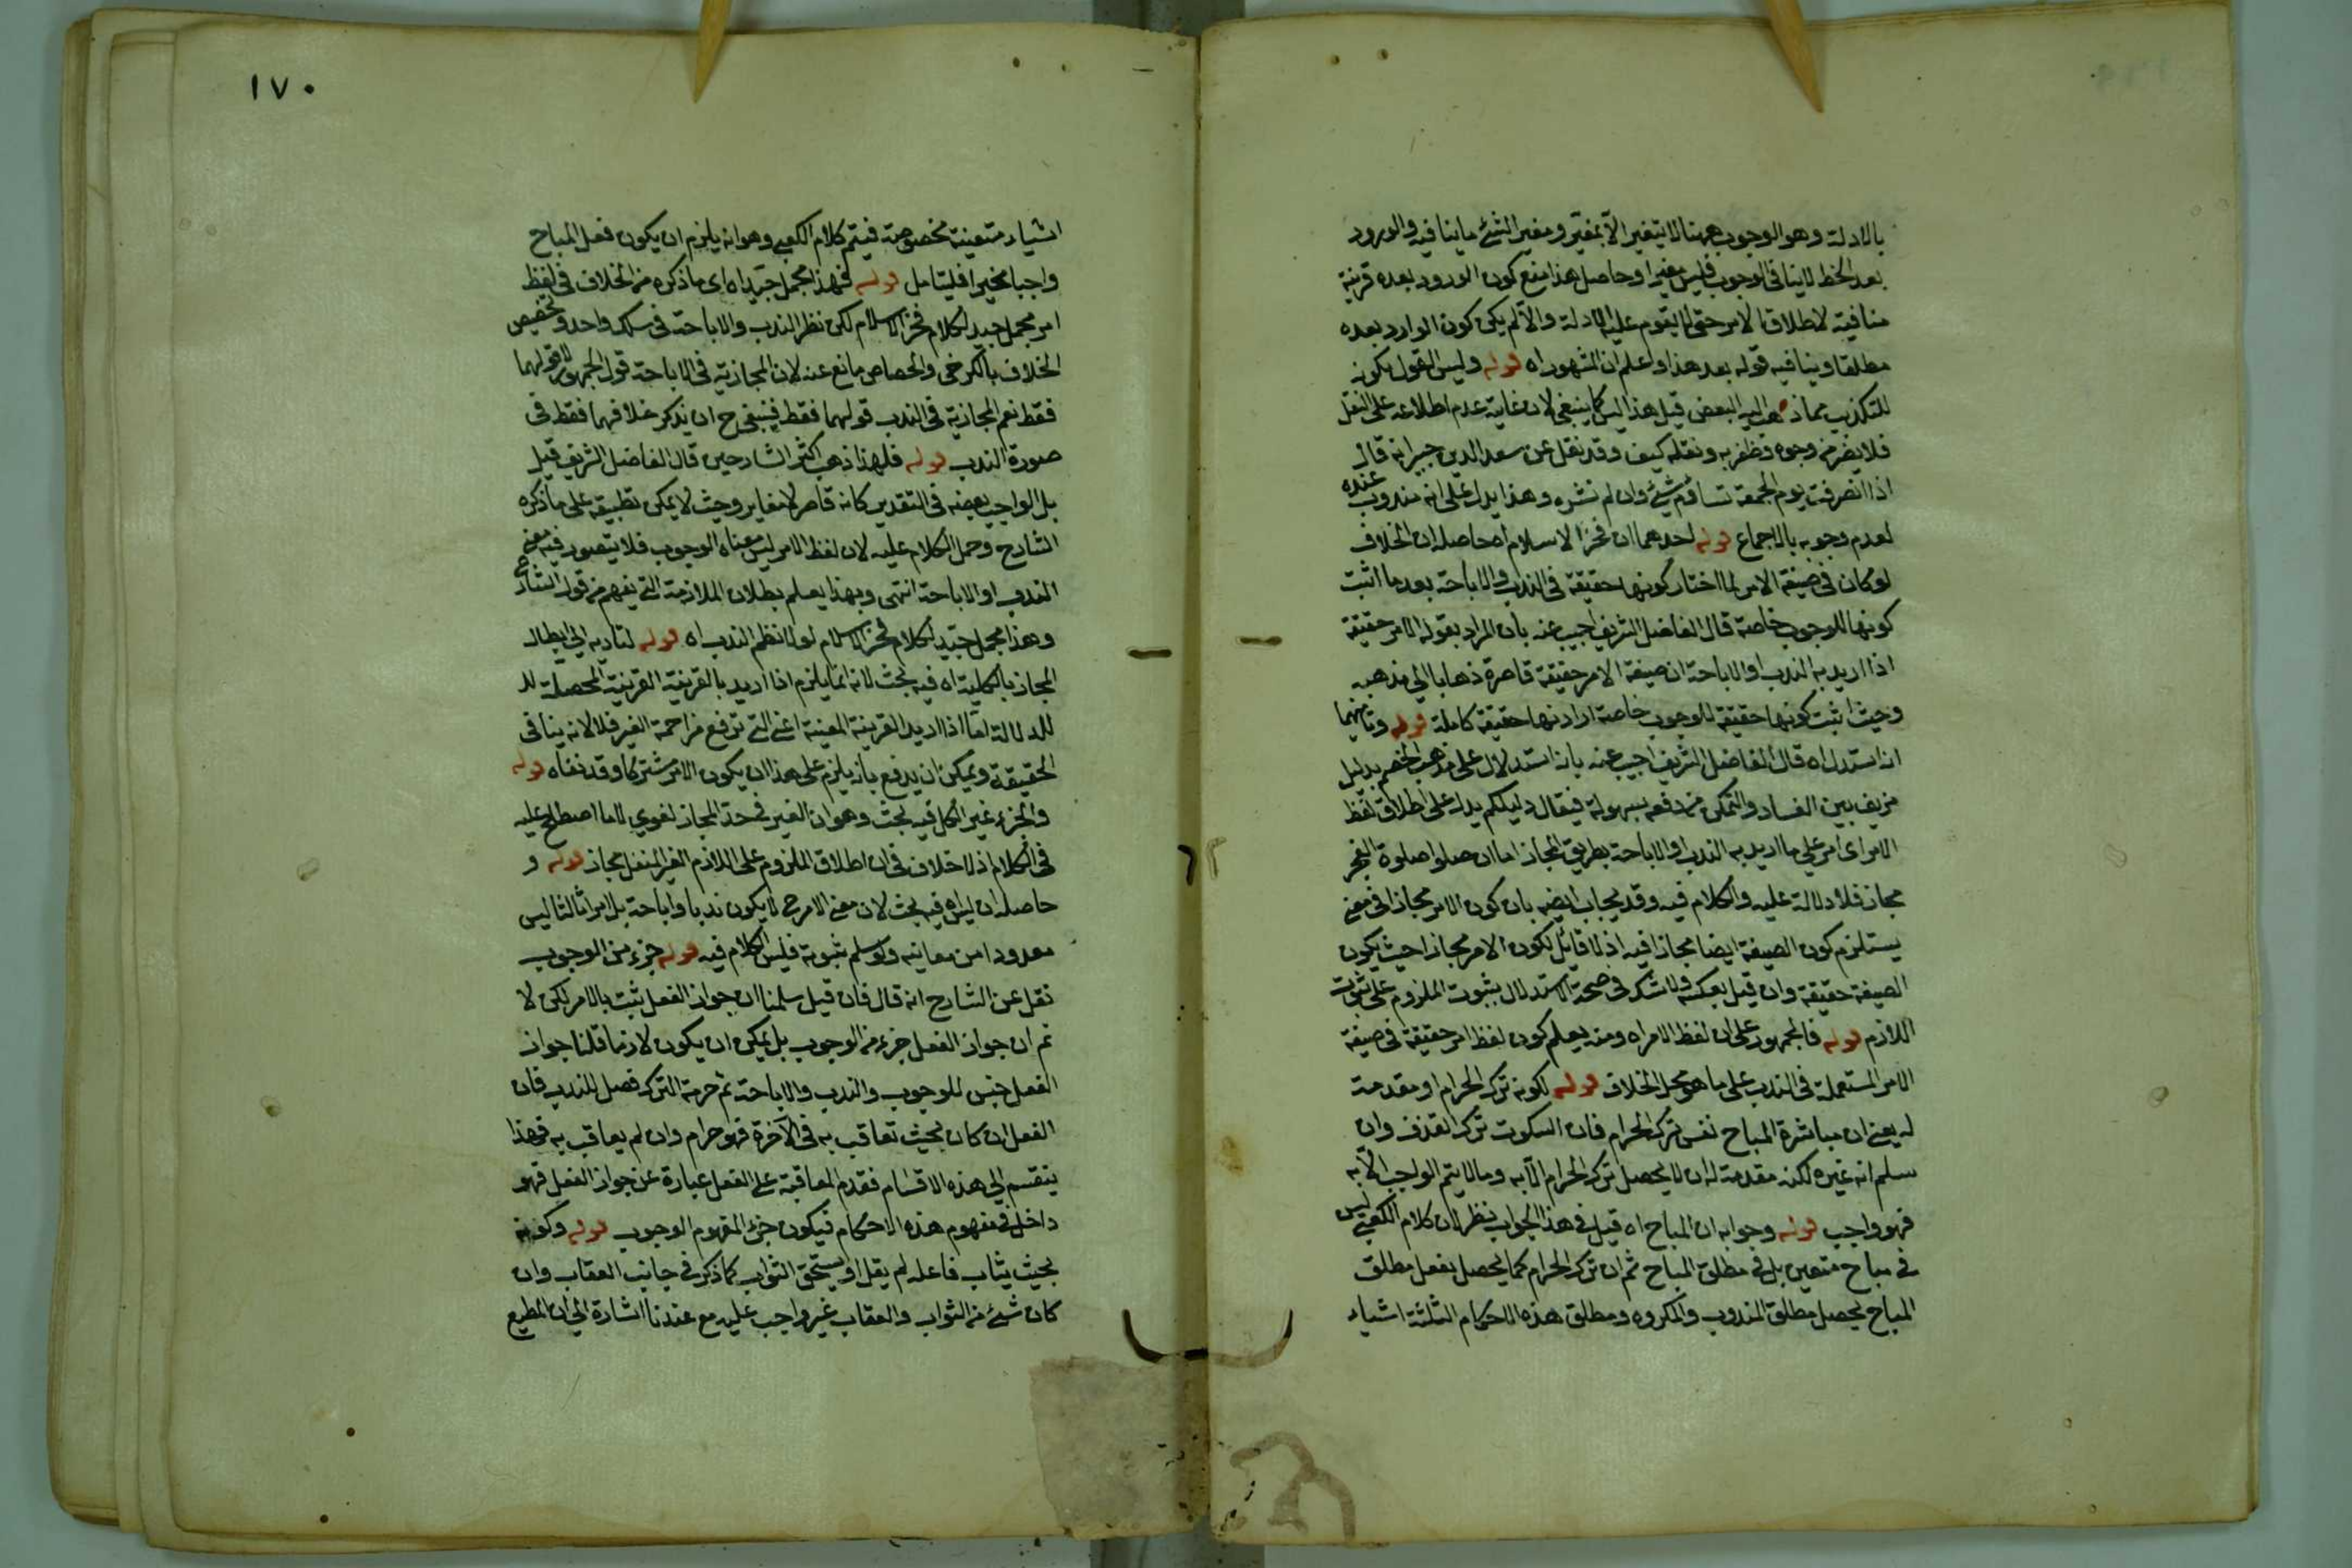 بالادلة وهو الوجوب ههنا لا يتغير الا بمغير ومغير الشئ ما ينافيه والورود
بعد الخطر لا ينافى الوجوب فليس مغيرا وحاصل هذا منع كون الورود بعده قرينة
منافية لاطلاق الامر حتى لا يقوم عليه الادلة والا لم يكن كون الوارد بعده
مطلقا وينافيه قوله بعد هذا واعلم ان المشهور اه قوله وليس القول بكونه
للتكذيب مما ذهب اليه البعض قيل هذا ليس كما ينبغى لان غاية عدم اطلاعه على النقل
فلا يضر من وجوه وظفر به ونقله كيف وقد نقل عن سعد الدين جبير انه قال
اذا انصرفت يوم الجمعة تساوم شئ وان لم تشره وهذا يدل على انه مندوب عنده
لعدم وجوبه بالاجماع قوله احدهما ان فخر الاسلام اه حاصله ان الخلاف
لو كان فى صيغة الامر لما اختار كونها حقيقة فى الندب والاباحة بعد ما اثبت
كونها للوجوب خاصة قال الفاضل الشريف اجيب عنه بان المراد بقوله الامر حقيقة
اذا اريد به الندب او الاباحة ان صيغة الامر حقيقة قاصرة ذهابا الى مذهبه
وحيث اثبت كونها حقيقة للوجوب خاصة اراد انها حقيقة كاملة قوله وثانيهما
انه استدل اه قال الفاضل الشريف اجيب عنه بانه استدلال على مذهب الخصم بدليل
مزيف بين الفساد والتمكن من دفعه بسهولة فيقال دليلكم يدل على اطلاق لفظ
الامر اى امر على ما اريد به الندب او الاباحة بطريق المجاز اما ان صلوا صلوة الفجر
مجاز فلا دلالة عليه والكلام فيه وقد يجاب ايضه بان كون الامر مجازا فى معنى
يستلزم كون الصيغة ايضا مجازا فيه اذ لا قائل بكون الامر مجازا حيث يكون
الصيغة حقيقة وان قيل بعكسه ولا شك فى صحة الاستدلال بثبوت الملزوم على ثبوت
اللازم قوله فالجمهور على ان لفظ الامر اه ومنه يعلم كون لفظ امر حقيقة فى صيغة
الامر المستعملة فى الندب على ما هو محل الخلاف قوله لكونه ترك الحرام او مقدمة
له يعنى ان مباشرة المباح نفس ترك الحرام فان السكوت ترك القذف وان
سلم انه غيره لكنه مقدمة له ان لا يحصل ترك الحرام الا به وما لا يتم الواجب الا به
فهو واجب قوله وجوابه ان المباح اه قيل فى هذا الجواب نظر لان كلام الكعبى ليس
فى مباح متعين بل فى مطلق المباح ثم ان ترك الحرام كما يحصل بفعل مطلق
المباح يحصل مطلق المندوب والمكروه ومطلق هذه الاحكام الثلثة اشياء
١٧٠
اشياء متعينة مخصوصة فيتم كلام الكعبى وهو انه يلزم ان يكون فعل المباح
واجبا مخيرا فليتامل قوله فهذا مجمل جيد اه اى ما ذكره من الخلاف فى لفظ
امر مجمل جيد لكلام فخر الاسلام لكن نظم الندب والاباحة فى سلك واحد وتخصيص
الخلاف بالكرخى والجصاص مانع عنه لان المجازية فى الاباحة قول الجمهور لا قولهما
فقط نعم المجازية فى الندب قولهما فقط فينبغى ح ان يذكر خلافهما فقط فى
صورة الندب قوله فلهذا ذهب اكثر الشارحين قال الفاضل الشريف قيل
بل الواجب بعضه فى التقدير كانه قاصر لا مغاير وحيث لا يمكن تطبيقه على ما ذكره
الشارح وحمل الكلام عليه لان لفظ الامر ليس معناه الوجوب فلا يتصور فيه معنى
الندب او الاباحة انتهى وبهذا يعلم بطلان الملازمة التى يفهم من قول الشارح
وهذا مجمل جيد لكلام فخر الاسلام لولا نظم الندب اه قوله لتاديه الى ابطال
المجاز بالكلية اه فيه بحث لانه انما يلزم اذا اريد بالقرينة القرينة المحصلة لل
للدلالة اما اذا اريد القرينة المعينة اعنى التى ترفع مزاحمة الغير فلا لانه ينافى
الحقيقة ويمكن ان يدفع بانه يلزم على هذا ان يكون الامر مشتركا وقد نفاه قوله
والجزء غير الكل فيه بحث وهو ان الغير فى حد المجاز لغوى لا ما اصطلح عليه
فى الكلام اذ لا خلاف فى ان اطلاق الملزوم على اللازم الغير المنفك مجاز قوله و
حاصله ان ليس اه فيه بحث لان معنى الامر ح لا يكون ندبا واباحة بل امرا ثالثا ليس
معدودا من معانيه ولو سلم ثبوته فليس الكلام فيه قوله جزء من الوجوب
نقل عن الشارح انه قال فان قيل سلمنا ان جواز الفعل ثبت بالامر لكن لا
نم ان جواز الفعل جزء من الوجوب بل يمكن ان يكون لازما قلنا جواز
الفعل جنس للوجوب والندب والاباحة ثم حرمة الترك فصل للندب فان
الفعل ان كان بحيث تعاقب به فى الآخرة فهو حرام وان لم يعاقب به فهذا
ينقسم الى هذه الاقسام فقدم المعاقبة على الفعل عبارة عن جواز الفعل فهو
داخل فى مفهوم هذه الاحكام فيكون جزء المفهوم الوجوب قوله وكونه
بحيث يثاب فاعله لم يقل او يستحق الثواب كما ذكر فى جانب العقاب وان
كان شئ من الثواب والعقاب غير واجب عليه مع عندنا اشارة الى ان المطيع